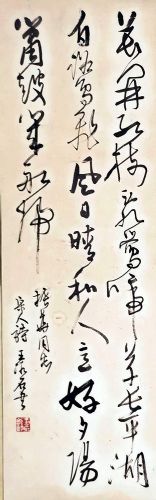 花開紅樹亂鶯啼草長平湖
白鷺飛風日晴和人意好夕陽
簫鼓幾船歸
同志
宋人詩 王